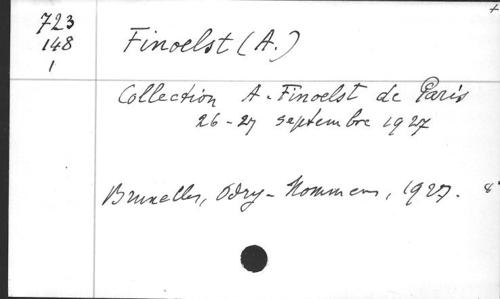 723
148
1
Finoelst (A.)
Collection A. Finoelst de Paris
26-27 septembre 1927
Bruxelles, Odry-Mommens, 1927. 8°